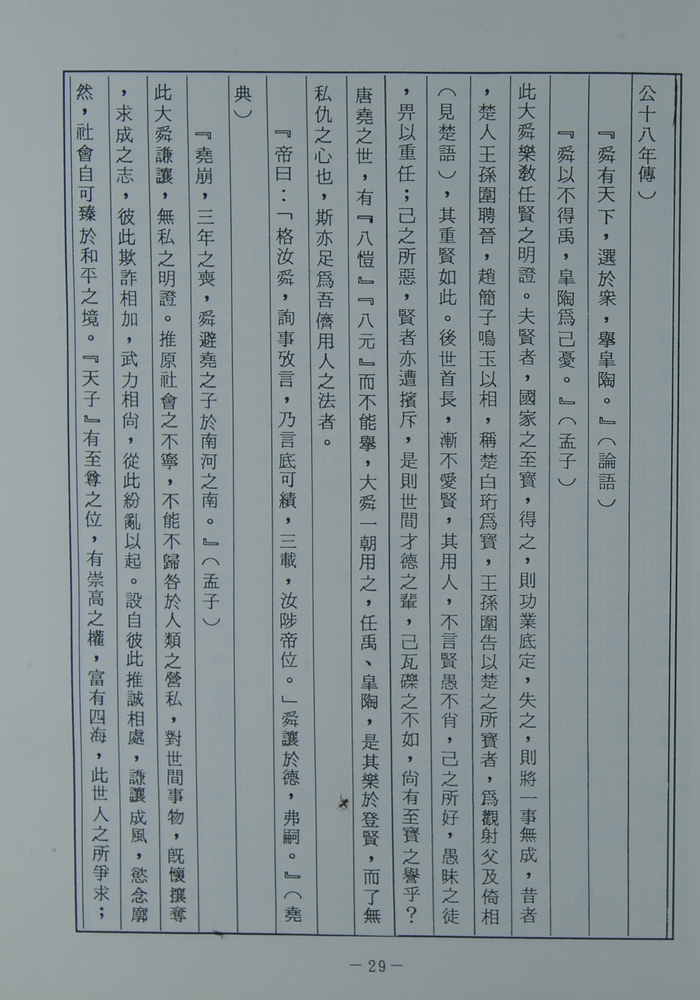 公十八年傳）
『舜有天下，選於衆，舉皐陶。』（論語）
『舜以不得禹，皐陶爲己憂。』（孟子）
此大舜樂敎任賢之明證。夫賢者，國家之至寶，得之，則功業底定，失之，則將一事無成，昔者
，楚人王孫圍聘晉，趙簡子鳴玉以相，稱楚白珩爲寶，王孫圍告以楚之所寶者，爲觀射父及倚相
（見楚語），其重賢如此。後世首長，漸不愛賢，其用人，不言賢愚不肖，己之所好，愚昧之徒
，畀以重任；己之所惡，賢者亦遭擯斥，是則世間才德之輩，己瓦礫之不如，尙有至寶之譽乎？
唐堯之世，有『八愷』『八元』而不能擧，大舜一朝用之，任禹、皐陶，是其樂於登賢，而了無
私仇之心也，斯亦足爲吾儕用人之法者。
『帝曰：「格汝舜，詢事攷言，乃言底可績，三載，汝陟帝位。」舜讓於德，弗嗣。』（堯
典）
『堯崩，三年之喪，舜避堯之子於南河之南。』（孟子）
此大舜謙讓，無私之明證。推原社會之不寧，不能不歸咎於人類之營私，對世間事物，旣懷攘奪
，求成之志，彼此欺詐相加，武力相尙，從此紛亂以起。設自彼此推誠相處，謙讓成風，慾念廓
然，社會自可臻於和平之境。『天子』有至尊之位，有崇高之權，富有四海，此世人之所爭求；
－29－